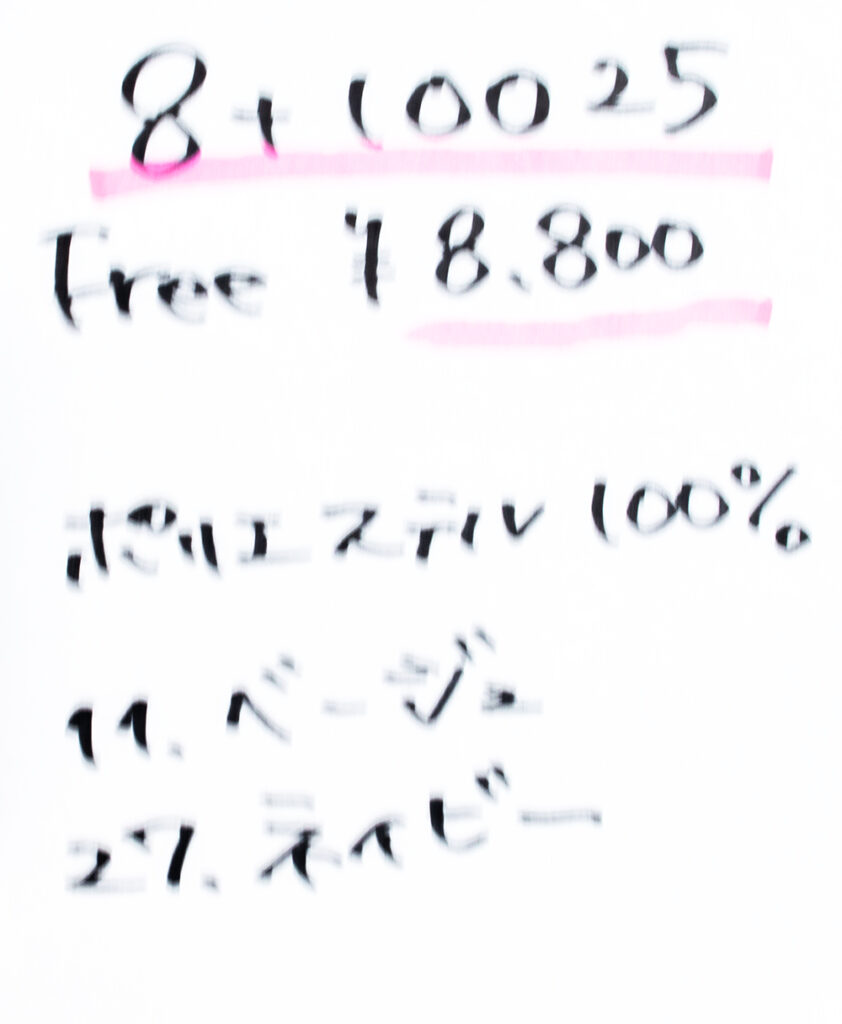 8+10025
Free ¥8.800
ポリエステル 100%
11. ベージュ
27. ネイビー